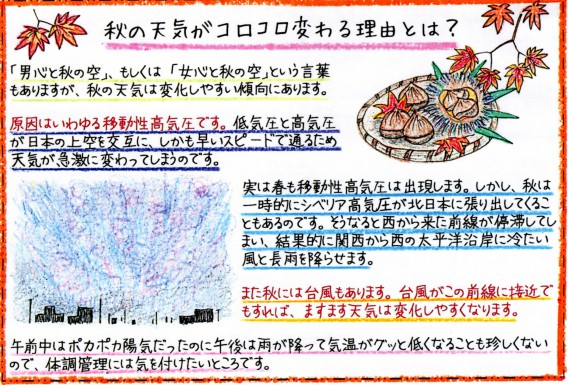 秋の天気がコロコロ変わる理由とは？
「男心と秋の空」、もしくは「女心と秋の空」という言葉
もありますが、秋の天気は変化しやすい傾向にあります。
原因はいわゆる移動性高気圧です。低気圧と高気圧
が日本の上空を交互に、しかも早いスピードで通るため
天気が急激に変わってしまうのです。
実は春も移動性高気圧は出現します。しかし、秋は
一時的にシベリア高気圧が北日本に張り出してくるこ
ともあるのです。そうなると西から来た前線が停滞してし
まい、結果的に関西から西の太平洋沿岸に冷たい
風と長雨を降らせます。
また秋には台風もあります。台風がこの前線に接近で
もすれば、ますます天気は変化しやすくなります。
午前中はポカポカ陽気だったのに午後は雨が降って気温がグッと低くなることも珍しくない
ので、体調管理には気を付けたいところです。